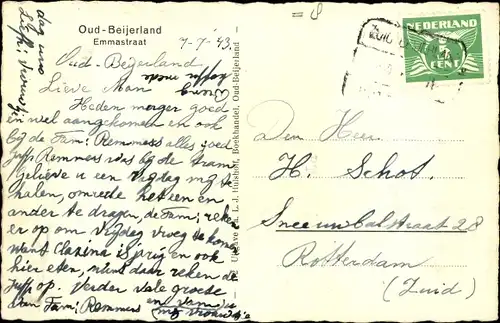 Oud-Beijerland
Emmastraat
7-7-'43.
Oud-Beijerland
Lieve Man
Heden morgen goed
en wel aangekomen en ook
bij de Fam: Remmers alles goed
Remmers was bij de tram
Gelieve u een Vrijdag mij te
halen, omrede het een en
ander te dragen, de Fam: reken
er op om Vrijdag vroeg te kom
want Clazina is jarig en ook
hier eten, daar reken de
op. Verder vele groete
van Fam: Remmers en van u
mij vrouwtje
dag ons
Liefh: vrouwtje
Uitgave L. J. Hulshof, Boekhandel, Oud-Beijerland
NEDERLAND
5
CENT
Den Heer
H. Schot.
Sneeuwbalstraat 28
Rotterdam
(Zuid)